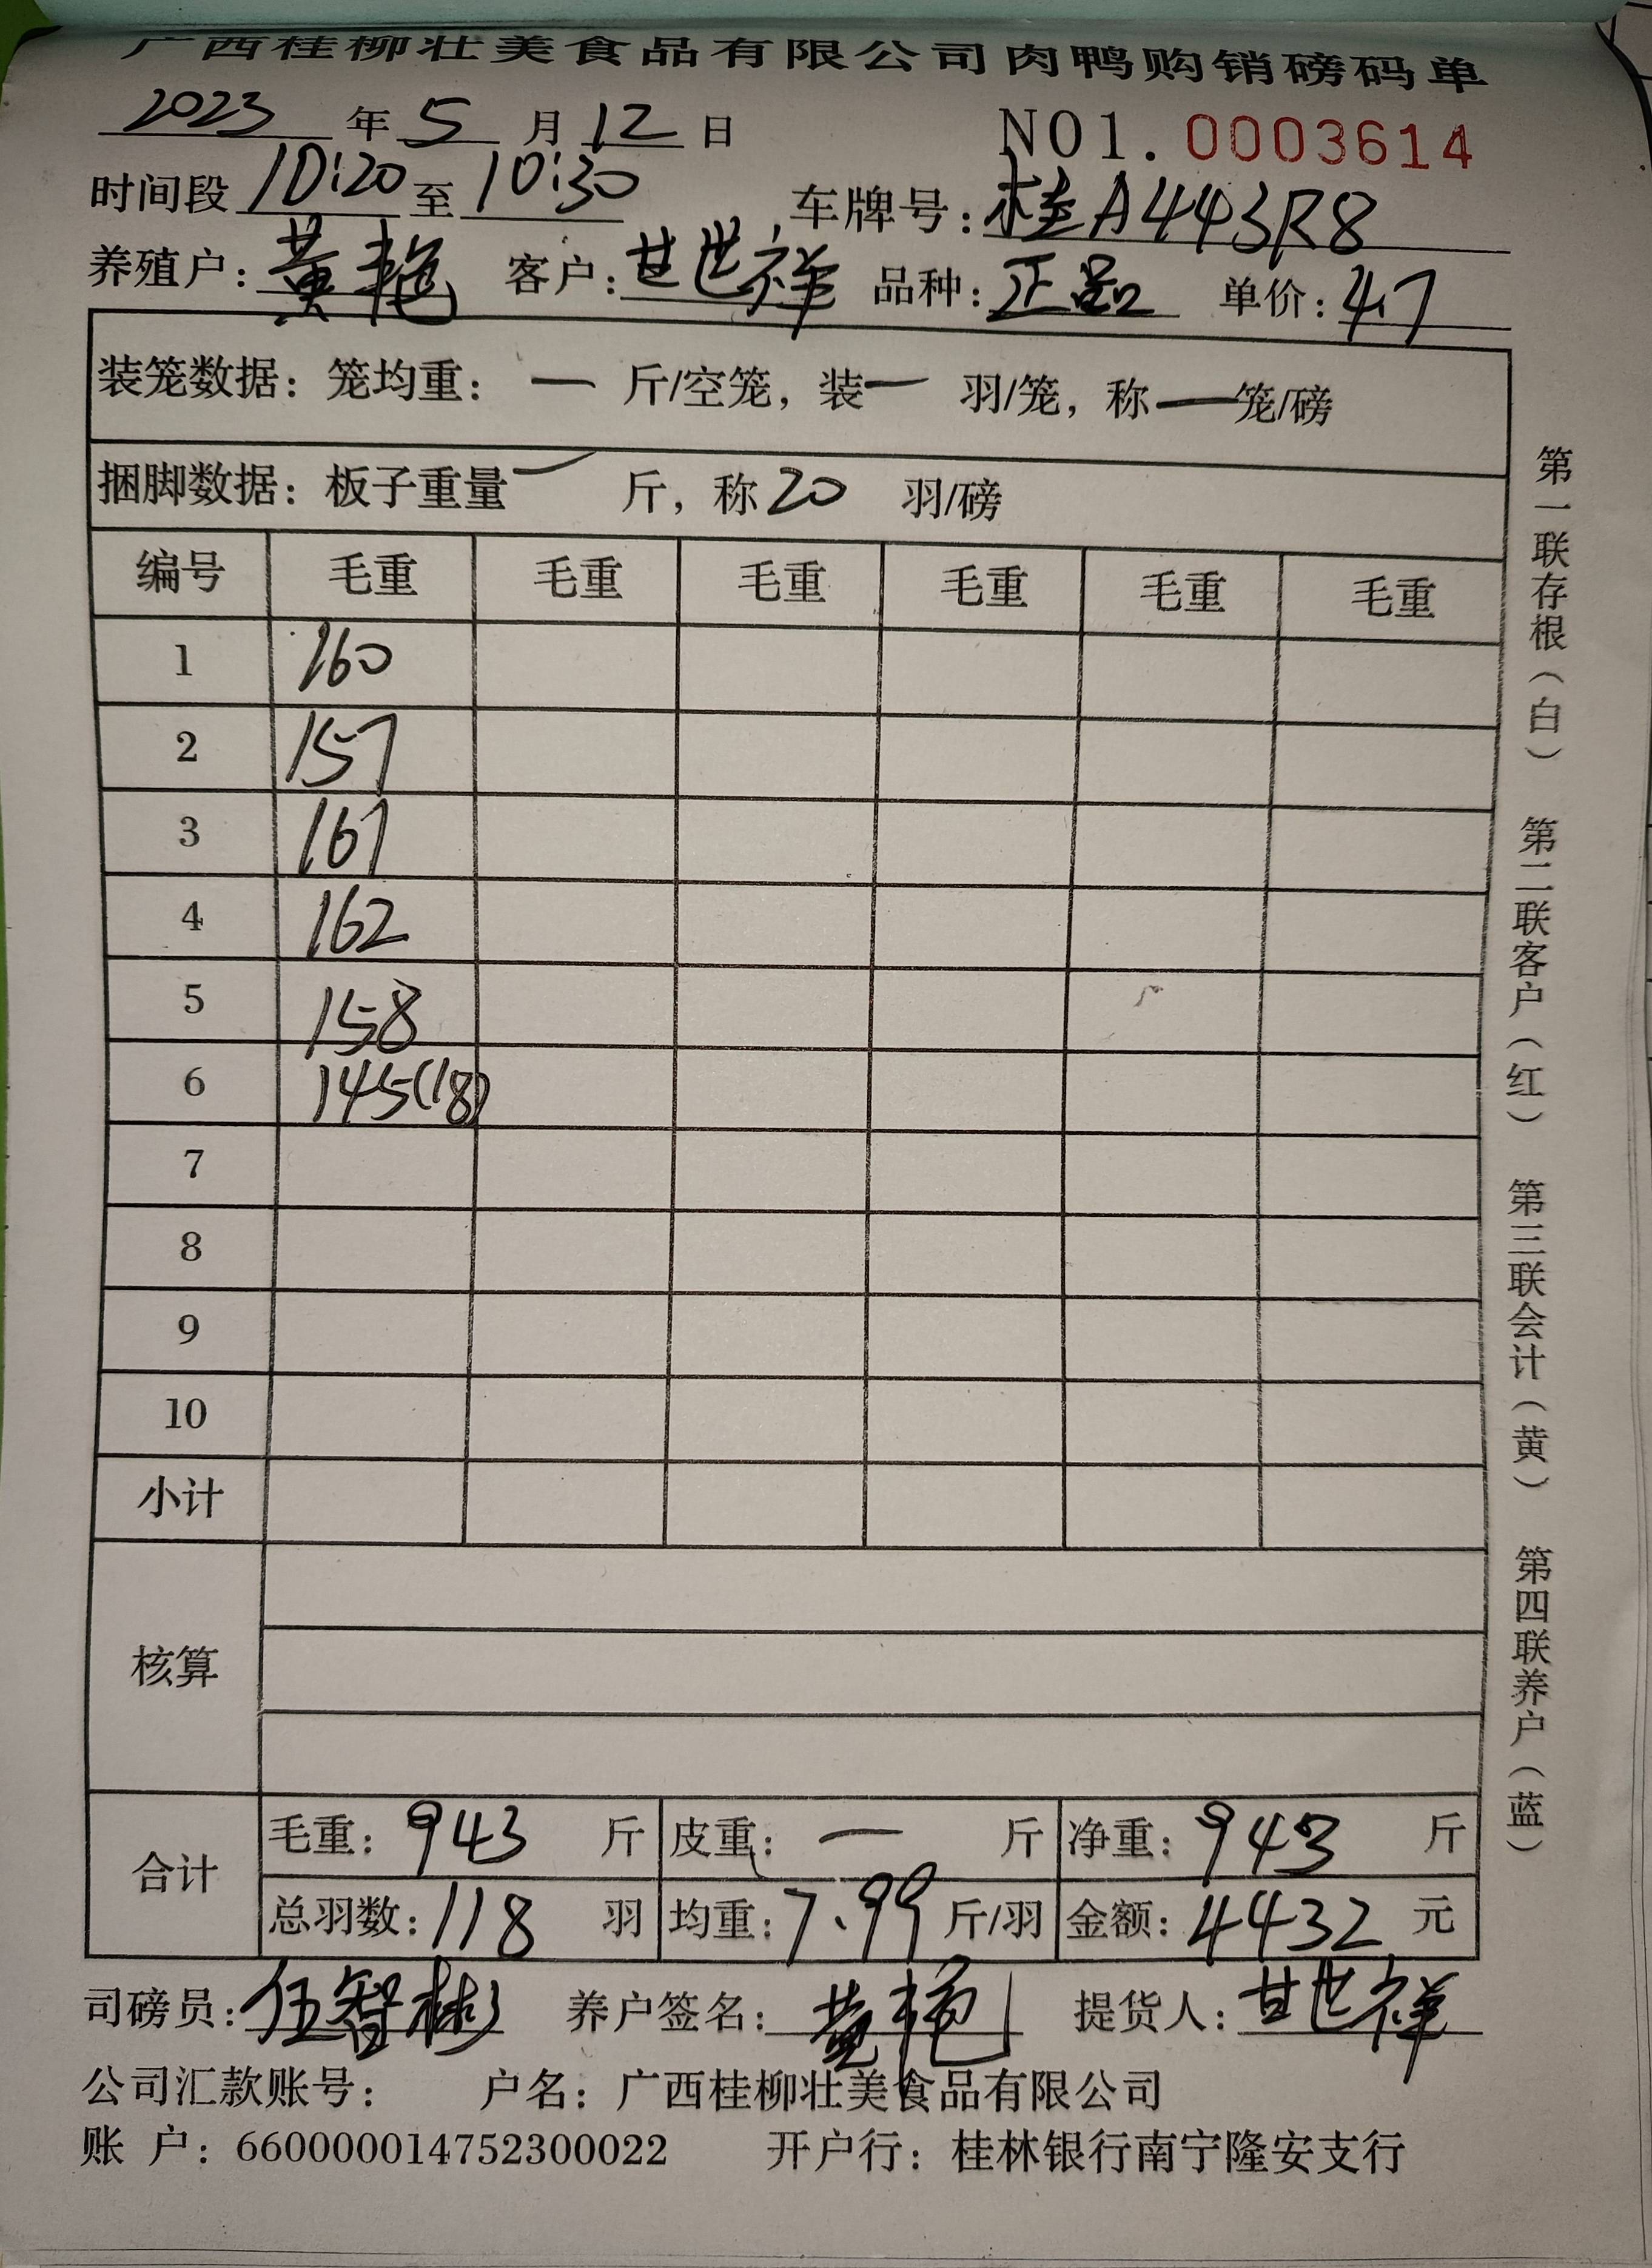 广西桂柳壮美食品有限公司肉鸭购销磅码单
2023 年 5 月 12 日 NO1. 0003614
时间段 10:20 至 10:30 车牌号: 桂A443R8
养殖户: 黄艳 客户: 甘世祥 品种: 正品 单价: 4.7
装笼数据: 笼均重: — 斤/空笼, 装 — 羽/笼, 称 — 笼/磅
捆脚数据: 板子重量 — 斤, 称 20 羽/磅
编号 毛重 毛重 毛重 毛重 毛重 毛重
1 160
2 157
3 161
4 162
5 158
6 145(18)
7
8
9
10
小计
核算
合计
毛重: 943 斤 皮重: — 斤 净重: 943 斤
总羽数: 118 羽 均重: 7.99 斤/羽 金额: 4432 元
司磅员: 伍智彬 养户签名: 黄艳 提货人: 甘世祥
公司汇款账号: 户名: 广西桂柳壮美食品有限公司
账 户: 660000014752300022 开户行: 桂林银行南宁隆安支行
第一联存根(白) 第二联客户(红) 第三联会计(黄) 第四联养户(蓝)